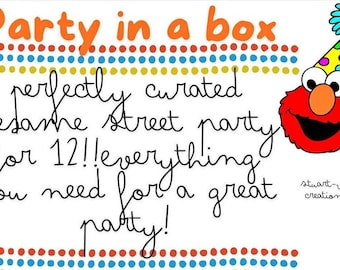 Party in a box
perfectly curated
esame street party
or 12!!everything
ou need for a great
party!
stuart-
creation